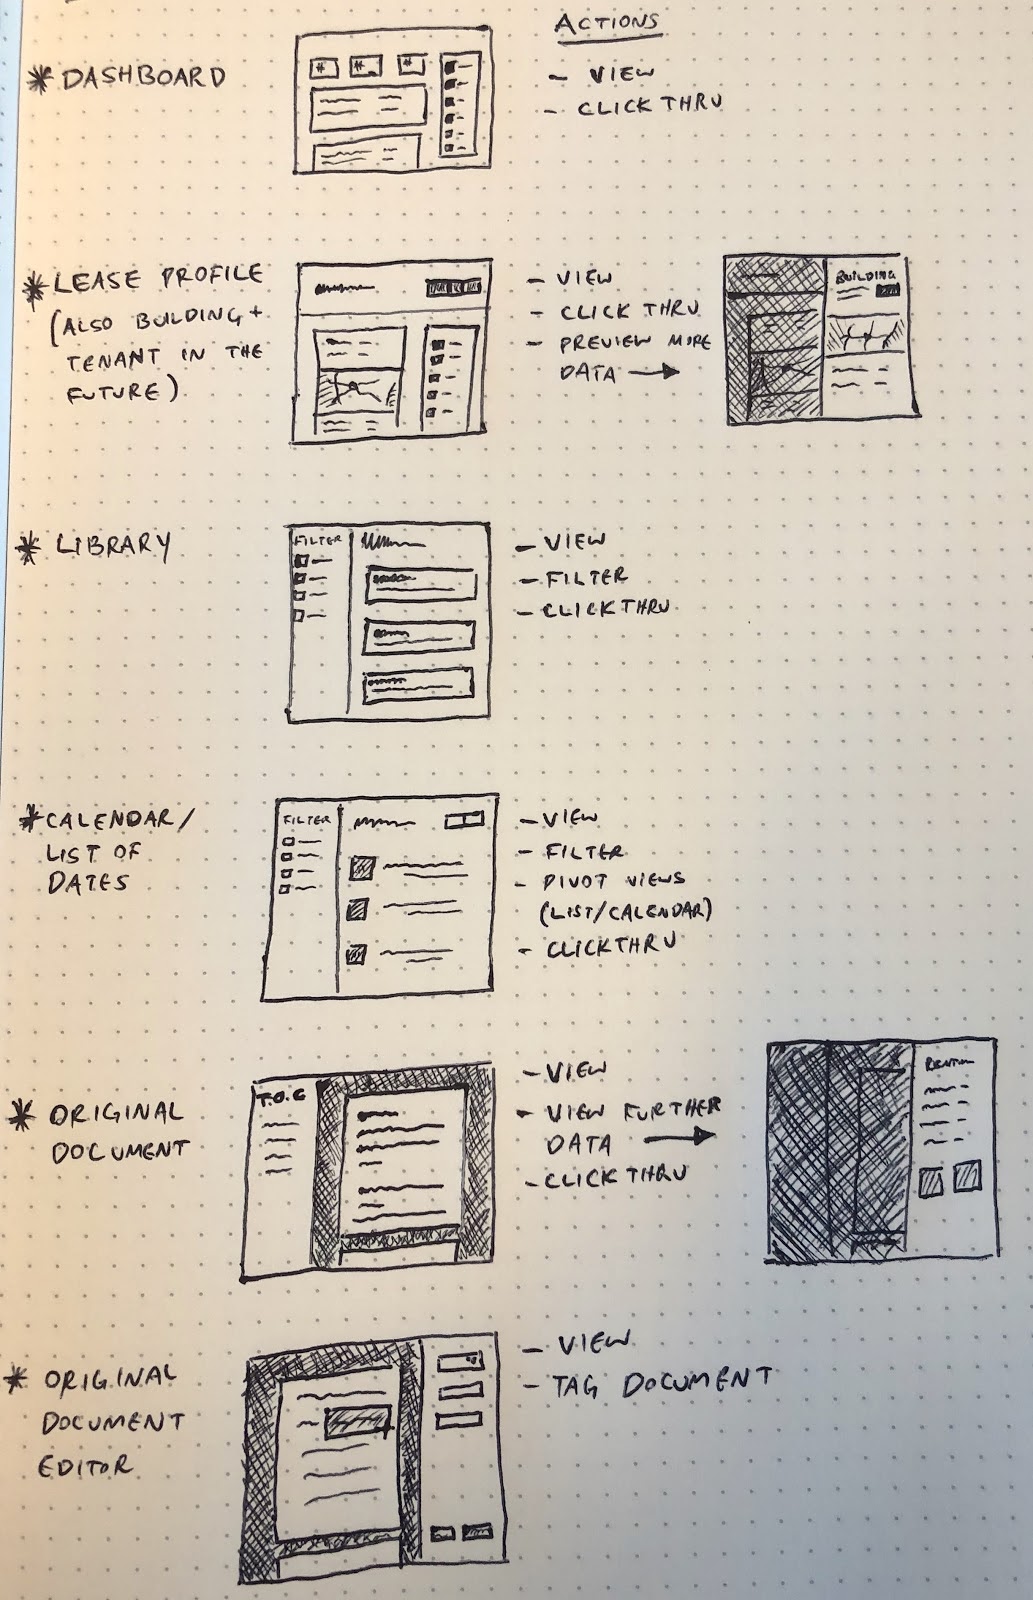 ACTIONS
* DASHBOARD
- VIEW
- CLICK THRU
* LEASE PROFILE
(ALSO BUILDING +
TENANT IN THE
FUTURE)
- VIEW
- CLICK THRU
- PREVIEW MORE
DATA →
BUILDING
* LIBRARY
FILTER
- VIEW
- FILTER
- CLICK THRU
* CALENDAR/
LIST OF
DATES
FILTER
- VIEW
- FILTER
- PIVOT VIEWS
(LIST/CALENDAR)
- CLICK THRU
* ORIGINAL
DOCUMENT
T.O.C
- VIEW
- VIEW FURTHER
DATA →
- CLICK THRU
* ORIGINAL
DOCUMENT
EDITOR
- VIEW
- TAG DOCUMENT